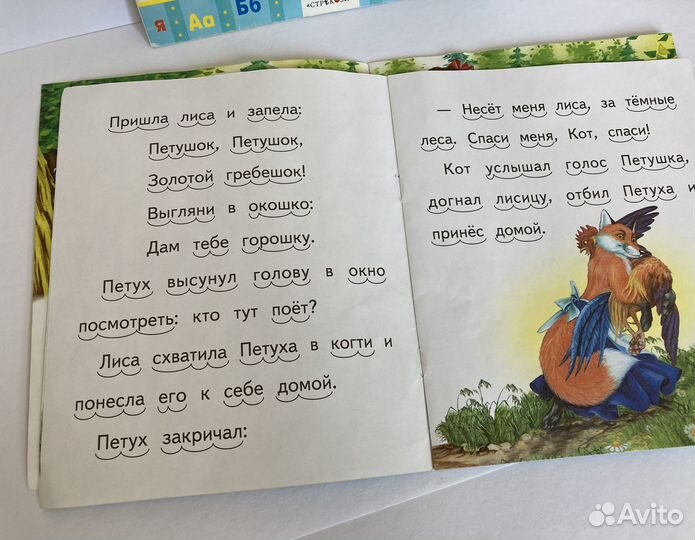 я Аа Бб «СТРЕКОЗА»
Пришла лиса и запела:
Петушок, Петушок,
Золотой гребешок!
Выгляни в окошко:
Дам тебе горошку.
Петух высунул голову в окно
посмотреть: кто тут поёт?
Лиса схватила Петуха в когти и
понесла его к себе домой.
Петух закричал:
— Несёт меня лиса, за тёмные
леса. Спаси меня, Кот, спаси!
Кот услышал голос Петушка,
догнал лисицу, отбил Петуха и
принёс домой.
Avito